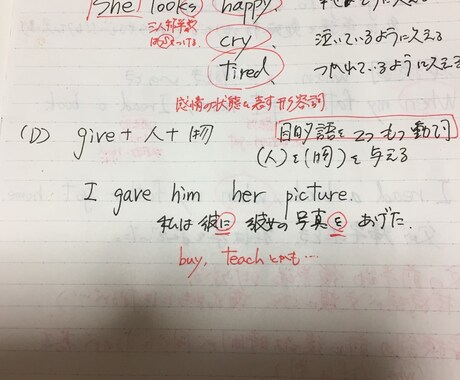 She looks happy.
三人称単数
はsをつける
cry. 泣いているように見える
tired. つかれているように見える
感情の状態を表す形容詞
(D) give + 人 + 物 目的語を2つもつ動詞
(人)に(物)を与える
I gave him her picture.
私は彼に彼女の写真をあげた.
buy, teachとかも…